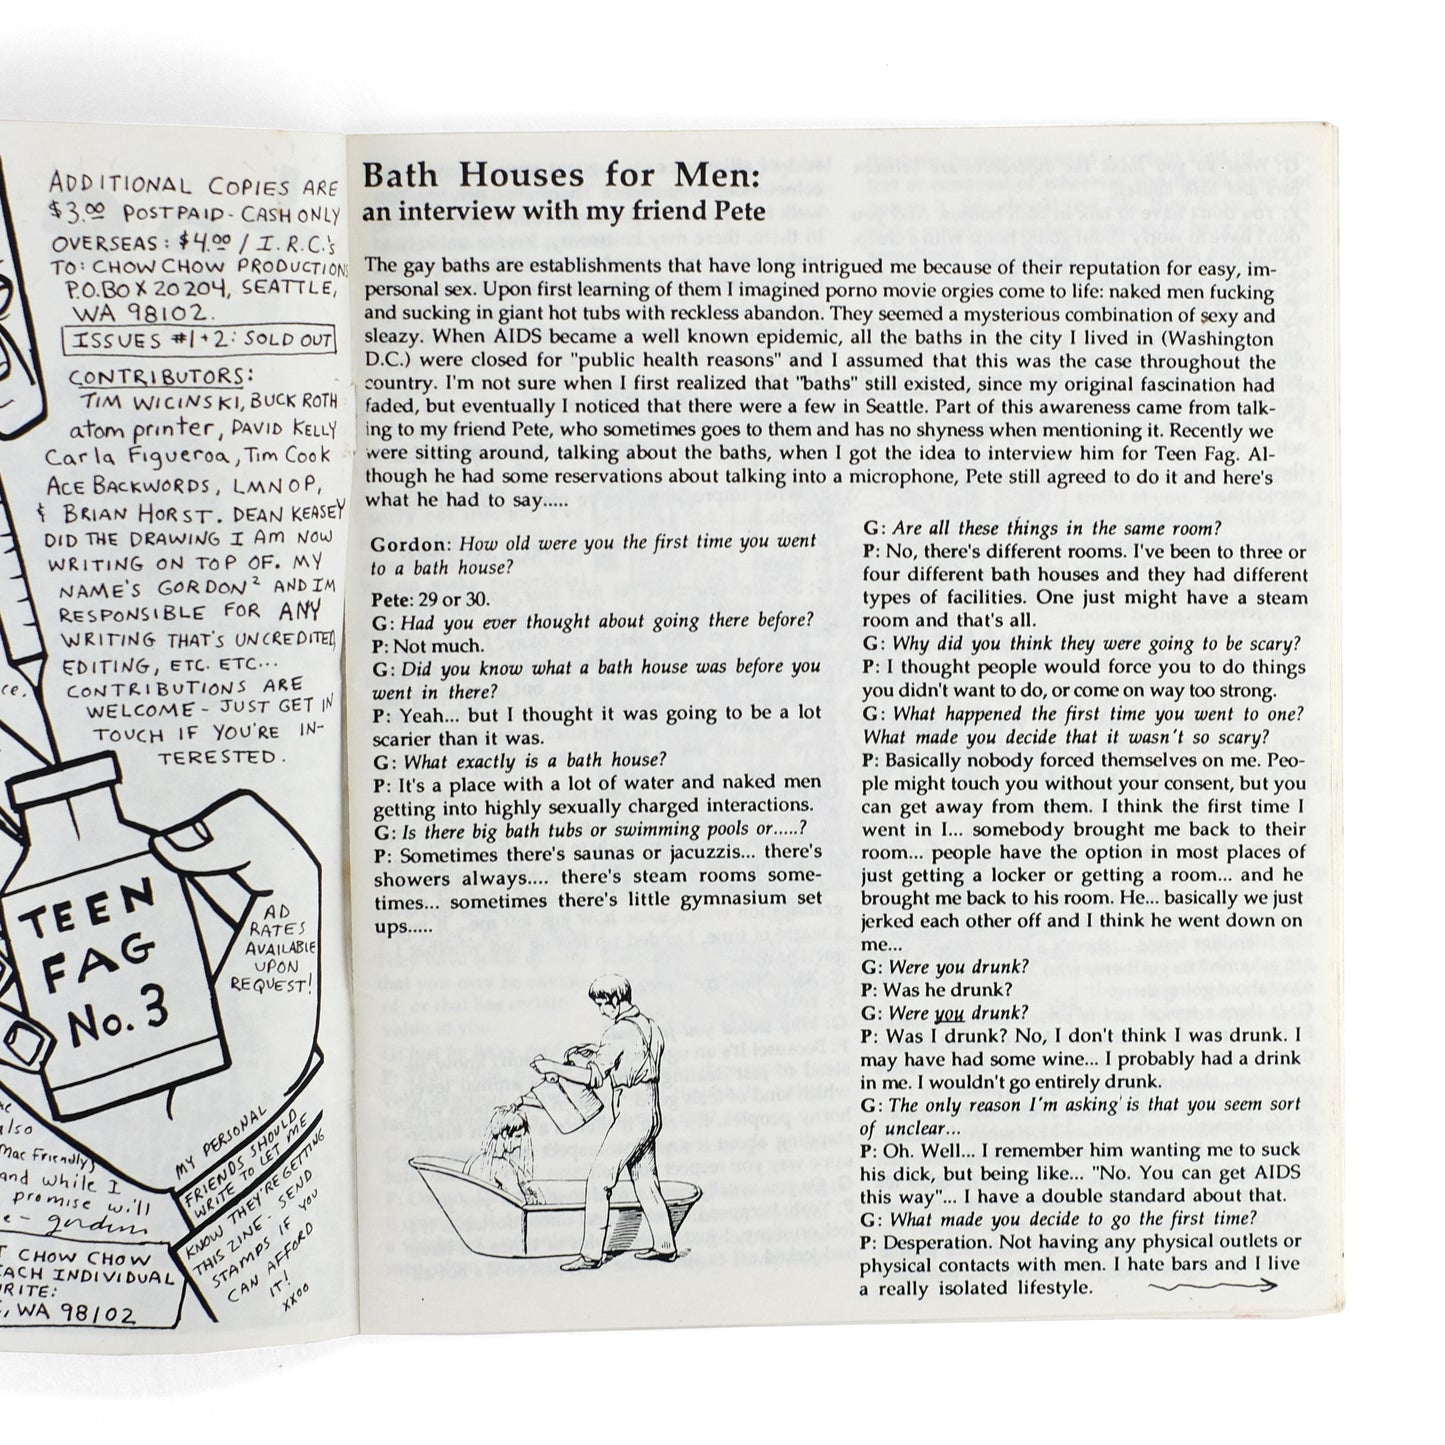 ADDITIONAL COPIES ARE
$3.00 POSTPAID - CASH ONLY
OVERSEAS: $4.00 / I.R.C.'s
TO: CHOW CHOW PRODUCTIONS
P.O. BOX 20204, SEATTLE,
WA 98102.
ISSUES #1+2: SOLD OUT
CONTRIBUTORS:
TIM WICINSKI, BUCK ROTH
atom printer, DAVID KELLY
Carla Figueroa, Tim Cook
ACE BACKWORDS, LMNOP,
& BRIAN HORST. DEAN KEASEY
DID THE DRAWING I AM NOW
WRITING ON TOP OF. MY
NAME'S GORDON² AND IM
RESPONSIBLE FOR ANY
WRITING THAT'S UNCREDITED,
EDITING, ETC. ETC...
CONTRIBUTIONS ARE
WELCOME - JUST GET IN
TOUCH IF YOU'RE IN-
TERESTED.
TEEN
FAG
No. 3
AD
RATES
AVAILABLE
UPON
REQUEST!
MY PERSONAL
FRIENDS SHOULD
WRITE TO LET ME
KNOW THEY'RE GETTING
THIS ZINE - SEND
STAMPS IF YOU
CAN AFFORD
IT!
xxoo
also
Mac Friendly)
and while I
promise will
gordon
CHOW CHOW
EACH INDIVIDUAL
WRITE:
WA 98102
Bath Houses for Men:
an interview with my friend Pete
The gay baths are establishments that have long intrigued me because of their reputation for easy, im-
personal sex. Upon first learning of them I imagined porno movie orgies come to life: naked men fucking
and sucking in giant hot tubs with reckless abandon. They seemed a mysterious combination of sexy and
sleazy. When AIDS became a well known epidemic, all the baths in the city I lived in (Washington
D.C.) were closed for "public health reasons" and I assumed that this was the case throughout the
country. I'm not sure when I first realized that "baths" still existed, since my original fascination had
faded, but eventually I noticed that there were a few in Seattle. Part of this awareness came from talk-
ing to my friend Pete, who sometimes goes to them and has no shyness when mentioning it. Recently we
were sitting around, talking about the baths, when I got the idea to interview him for Teen Fag. Al-
though he had some reservations about talking into a microphone, Pete still agreed to do it and here's
what he had to say.....
Gordon: How old were you the first time you went
to a bath house?
Pete: 29 or 30.
G: Had you ever thought about going there before?
P: Not much.
G: Did you know what a bath house was before you
went in there?
P: Yeah... but I thought it was going to be a lot
scarier than it was.
G: What exactly is a bath house?
P: It's a place with a lot of water and naked men
getting into highly sexually charged interactions.
G: Is there big bath tubs or swimming pools or.....?
P: Sometimes there's saunas or jacuzzis... there's
showers always.... there's steam rooms some-
times... sometimes there's little gymnasium set
ups.....
G: Are all these things in the same room?
P: No, there's different rooms. I've been to three or
four different bath houses and they had different
types of facilities. One just might have a steam
room and that's all.
G: Why did you think they were going to be scary?
P: I thought people would force you to do things
you didn't want to do, or come on way too strong.
G: What happened the first time you went to one?
What made you decide that it wasn't so scary?
P: Basically nobody forced themselves on me. Peo-
ple might touch you without your consent, but you
can get away from them. I think the first time I
went in I... somebody brought me back to their
room... people have the option in most places of
just getting a locker or getting a room... and he
brought me back to his room. He... basically we just
jerked each other off and I think he went down on
me...
G: Were you drunk?
P: Was he drunk?
G: Were you drunk?
P: Was I drunk? No, I don't think I was drunk. I
may have had some wine... I probably had a drink
in me. I wouldn't go entirely drunk.
G: The only reason I'm asking is that you seem sort
of unclear...
P: Oh. Well... I remember him wanting me to suck
his dick, but being like... "No. You can get AIDS
this way"... I have a double standard about that.
G: What made you decide to go the first time?
P: Desperation. Not having any physical outlets or
physical contacts with men. I hate bars and I live
a really isolated lifestyle.